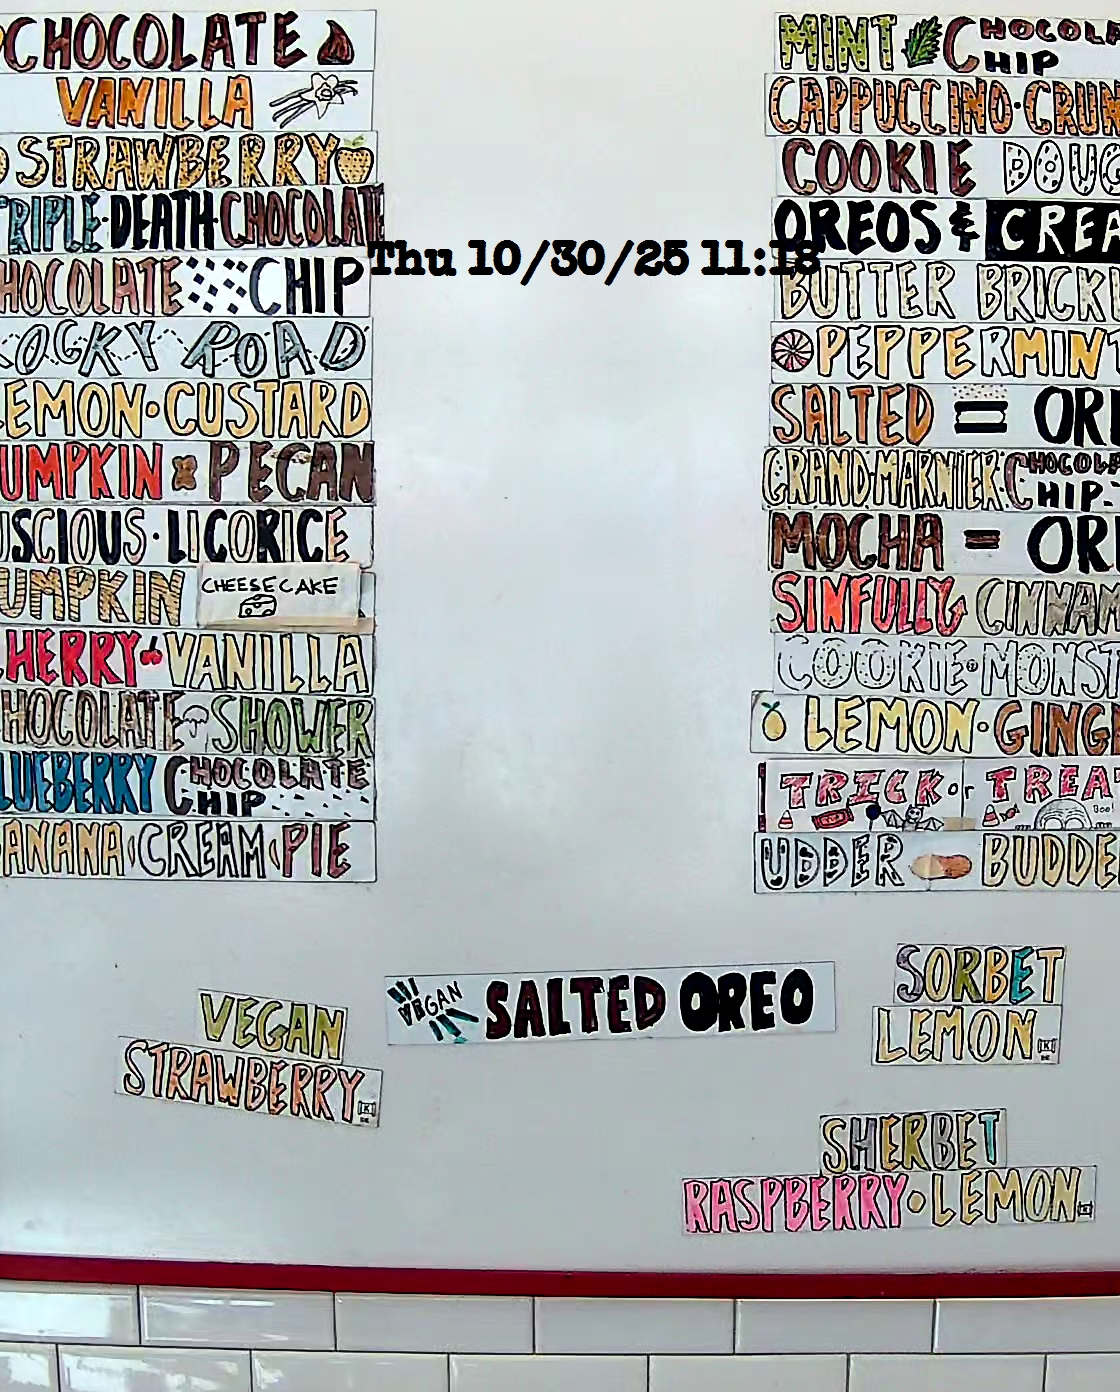 CHOCOLATE
VANILLA
STRAWBERRY
TRIPLE·DEATH·CHOCOLATE
HOCOLATE CHIP
OCKY ROAD
LEMON·CUSTARD
UMPKIN PECAN
USCIOUS·LICORICE
UMPKIN CHEESECAKE
HERRY VANILLA
HOCOLATE SHOWER
LUEBERRY CHOCOLATE CHIP
ANANA CREAM PIE
Thu 10/30/25 11:18
MINT CHOCOLA CHIP
CAPPUCCINO·CRUN
COOKIE DOUG
OREOS & CREA
BUTTER BRICK
PEPPERMINT
SALTED = ORE
GRAND·MARNIER·CHOCOLA CHIP-
MOCHA = ORE
SINFULLY CINNAM
COOKIE·MONST
LEMON·GING
TRICK or TREAT
Boo!
UDDER BUDDE
VEGAN
STRAWBERRY
VEGAN SALTED OREO
SORBET
LEMON
SHERBET
RASPBERRY·LEMON